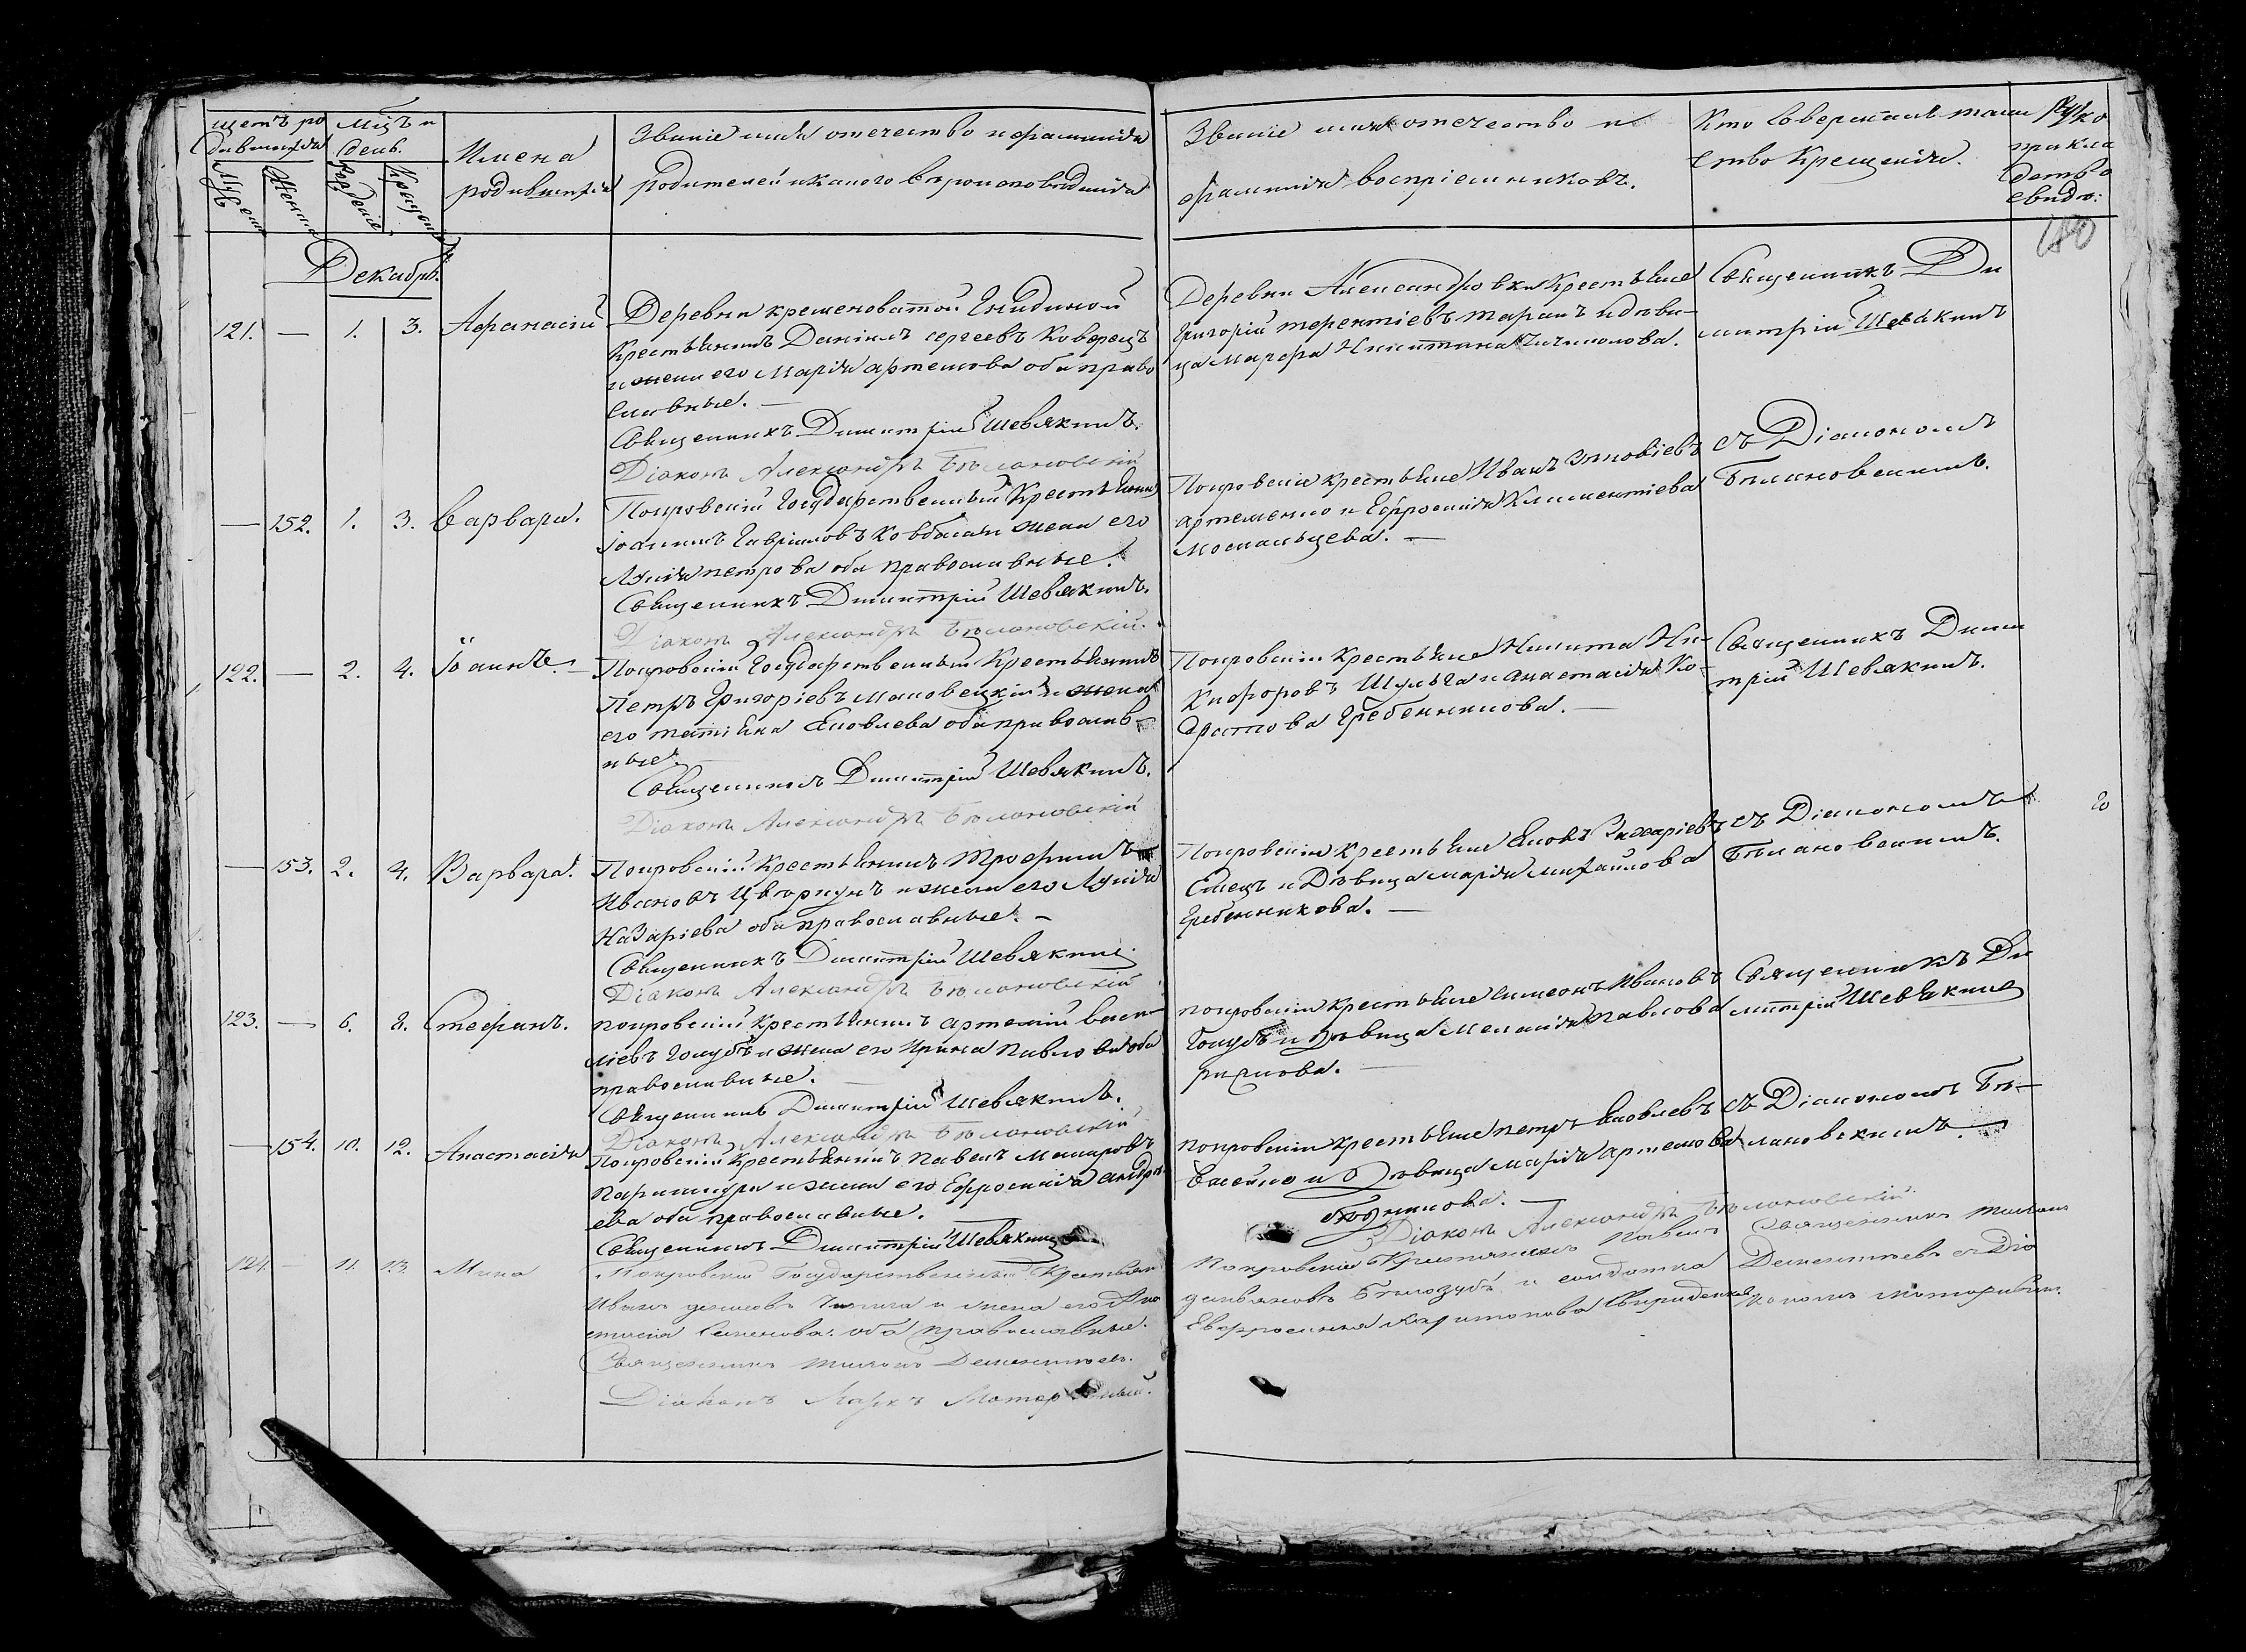 щетъ ро
дившихся
Мужеска
Женска
Мѣцъ и
день.
Рожденіе
Крещеніе
Имена
родившихся
Званіе имя отечество и фамилія
родителей и какого вѣроисповѣданія
Званіе имя отечество и
фамилія воспріемниковъ.
Кто Совершалъ таин
ство Крещенія.
Руко
прикла
детво
свидѣ:
180
Декабрь.
121. — 1. 3. Афанасій
Деревни кременоватой
Крестьянинъ Даніилъ сергеевъ Коверецъ
и жена его Марія артемова оба право
славные. —
Священникъ Димитрій Шевякинъ.
Діаконъ Александръ Бѣлановскій
Деревни Александровки Крестьяне
Григорій терентіевъ таранъ и дѣви-
ца Марфа Никитина
Священникъ Ди
митрій Шевякинъ
— 152. 1. 3. Варвара.
Покровскій Государственный Крестьянин
Іоаннъ Гавріиловъ Ковбаса и жена его
Лукія петрова оба православные.
Священникъ Димитрій Шевякинъ.
Діаконъ Александръ Бѣлановскій.
Покровскіе крестьяне Иванъ Зиновіевъ
артеменко и Ефросинія Климентіева
Москальцева. —
съ Діакономъ
Бѣлановскимъ.
122. — 2. 4. Іоаннъ. —
Покровскій Государственный Крестьянинъ
Петръ Григоріевъ Маковецкій и жена
его татіяна Яковлева оба православ-
ные.
Священникъ Димитрій Шевякинъ.
Діаконъ Александръ Бѣлановскій
Покровскіи крестьяне Никита Ни-
кифоровъ Шульга и анастасія Ко-
дратова Гребенникова. —
Священникъ Дими
трій Шевякинъ.
— 153. 2. 4. Варвара.
Покровскій Крестьянинъ Трофимъ
Ивановъ Цвѣркунъ и жена его Лукія
Назаріева оба православные. —
Священникъ Димитрій Шевякинъ
Діаконъ Александръ Бѣлановскій
Покровскіи крестьяне Яковъ Захаріевъ
Емецъ и Дѣвица марія михайлова
Гребенникова. —
съ Діакономъ
Бѣлановскимъ.
20
123. — 6. 8. Стефанъ.
покровскій Крестьянинъ артемій васи-
ліевъ Голубъ и жена его Ирина Павлова оба
православные. —
Священникъ Димитрій Шевякинъ.
Діаконъ Александръ Бѣлановскій
покровскіи крестьяне симеонъ Ивановъ
Голубъ и дѣвица Меланія павлова
Священникъ Ди
митрій Шевякинъ
— 154. 10. 12. Анастасія
Покровскій Крестьянинъ Павелъ Макаровъ
и жена его Ефросинія андре
ева оба православные.
Священникъ Димитрій Шевякинъ
покровскіи крестьяне петръ Яковлевъ
Евсейко и Дѣвица марія артемова
Діаконъ Александръ Бѣлановскій.
съ Діакономъ Бѣ-
лановскимъ. —
124. — 11. 13. Мина
Покровскій Государственный Крестьян
Иванъ и жена его Ана
стасія Семенова: оба православные.
Священникъ Тихонъ Дементьевъ.
Діаконъ Маркъ
Покровскій Крестьянинъ Павелъ
демьяновъ Бѣлозубъ и солдатка
Евфросинія Харитонова Свириденкова
Священникъ Тихонъ
Дементьевъ съ Діа
кономъ